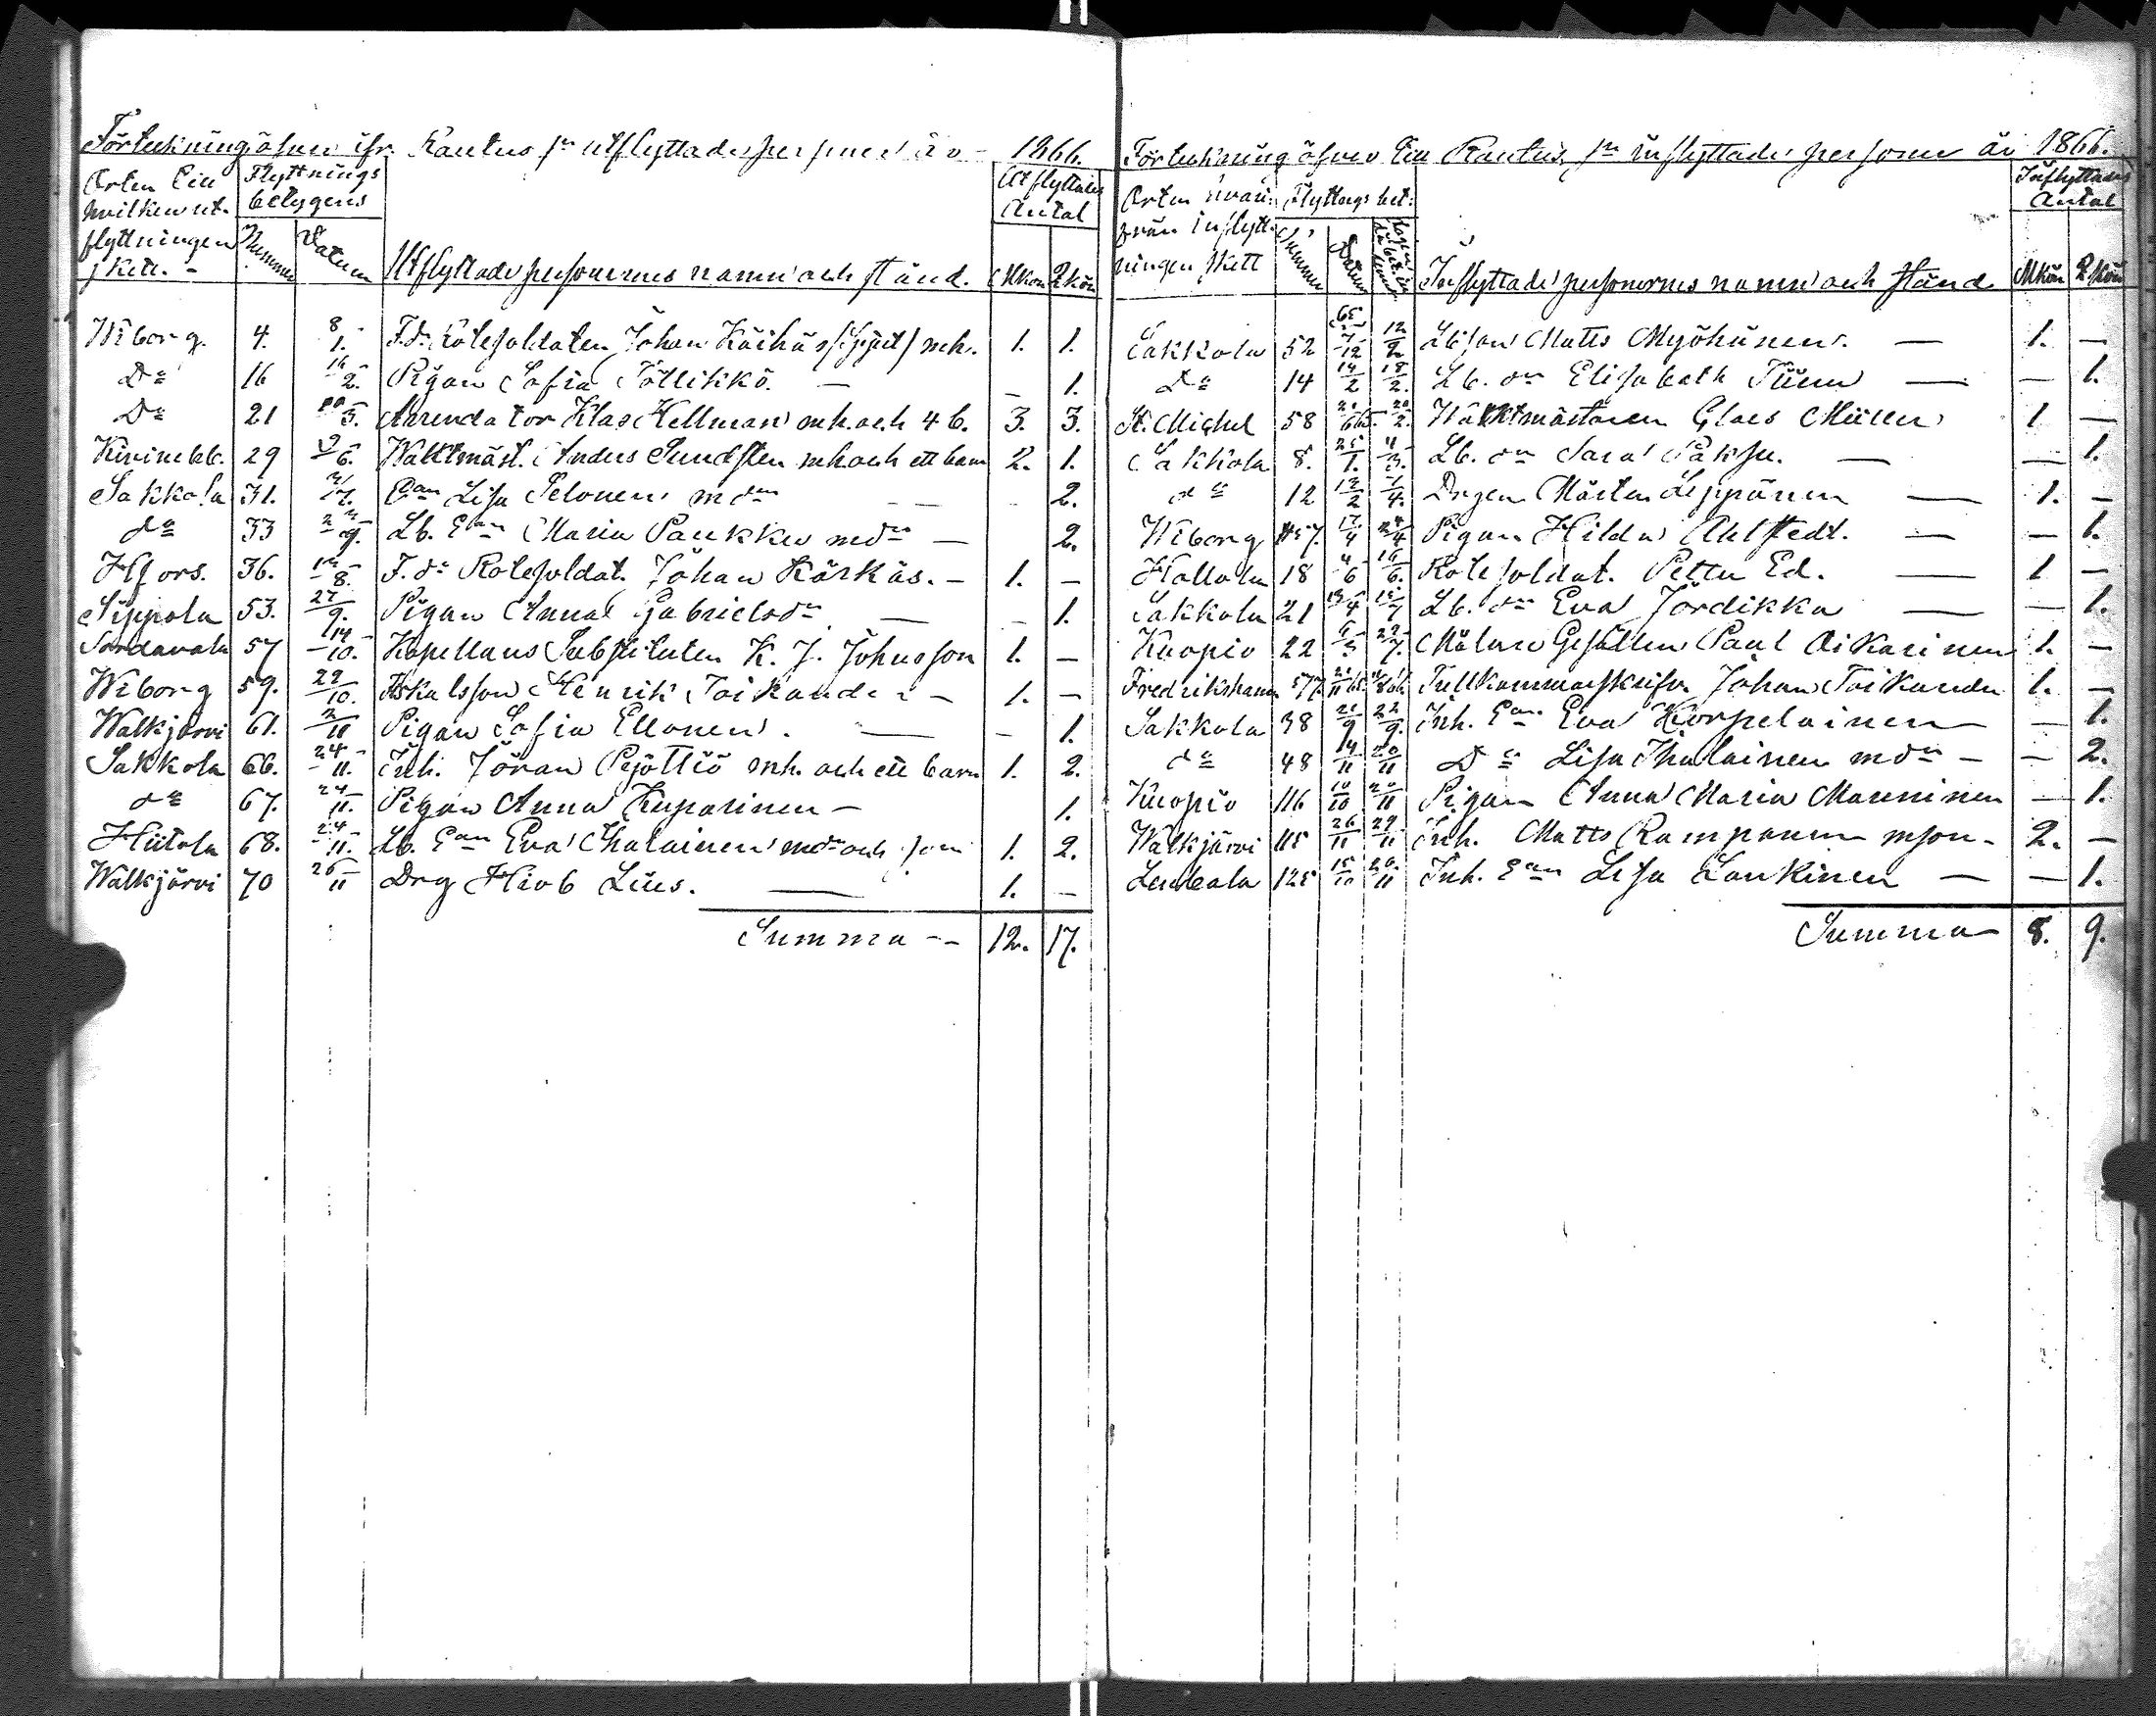 Förteckning öfver ifr. Rautus sn utflyttade personer år 1866.
Orten till hvilken utflyttningen skett. - Flyttnings betygens Nummer Datum Utflyttade personernes namn och stånd. Utflyttades Antal Mkön Qkön
Wiborg. 4. 8/1. F.d. Rotesoldaten Johan mh. 1. 1.
Do 16 16/2. Pigan Sofia Töllikkö. — – 1.
Do 21 /3. Arrendator Klas Hellman mh. och 4 b. 3. 3.
Kivinebb. 29 9/6. Waktmäst. Anders Sundsten mh och ett barn 2. 1.
Sakkola 31. /7. Ean Lisa Pelonen m dr 2.
do 33 /9. Lb. Ean Maria Paukku mdr — 2.
Hfors. 36. /8. F. d. Rotesoldat. Johan Kärkäs. – 1. –
Sippola 53. 27/9. Pigan Anna Gabrielsdr — – 1.
Sordavala 57 14/10. Kapellans Substituten K. J. Johnsson 1. –
Wiborg 59. 22/10. Henrik Toikander – 1. –
Walkjärvi 61. 2/11 Pigan Sofia Ellonen. — – 1.
Sakkola 66. 24/11. Inh. Jöran Pyöttiö mh. och ett barn 1. 2.
do 67. 24/11. Pigan Anna Kuparinen – 1.
Hiitola 68. 24/11. Lb. Ean Eva Ihalainen mdr och son 1. 2.
Walkjärvi 70 26/11 Drg Hiob Lius. — 1. –
Summa -- 12. 17.
Förteckning öfver till Rautus sn inflyttade personer år 1866.
Orten hvarifrån inflyttningen skett Flyttngs bet: Nummer Datum Inflyttade personernes namn och stånd Inflyttades Antal Mkön Qkön
Sakkola 52 65 7/12 12/2 Lbson Matts Myöhänen. — 1. –
Do 14 14/2 18/2. Lb. dr Elisabeth — – 1.
St. Michel 58 Waktmästaren Claes Müller 1 –
Sakkola 8. 25/1. 4/3. Lb. dr Sara Paksu. — – 1.
do 12 12/2 1/4. Drgen Mårten Leppänen — 1. –
Wiborg 17/4 24/4 Pigan Hilda Ahlstedt. — – 1.
Hollola 18 4/6 16/6. Rotesoldat. Petter Ed. — 1 –
Sakkola 21 13/4 15/7 Lb. dr Eva Jordikka — – 1.
Kuopio 22 Målare Gesällen Paul Aikarinen 1. –
Fredrikshamn 577. Tullkammarskrifv. Johan Toikander 1. –
Sakkola 38 21/9 22/9. Inh. Ean Eva Korpelainen – 1.
do 48 14/11 20/11 Do Lisa Ihalainen mdr – – 2.
Kuopio 116 10/10 Pigan Anna Maria Manninen – 1.
Walkjärvi 115 26/11 29/11 Inh. Matts Rampanen mson – 2. –
Lembala 125 15/10 26/11 Inh. Ean Lisa Laukinen — – 1.
Summa 8. 9.